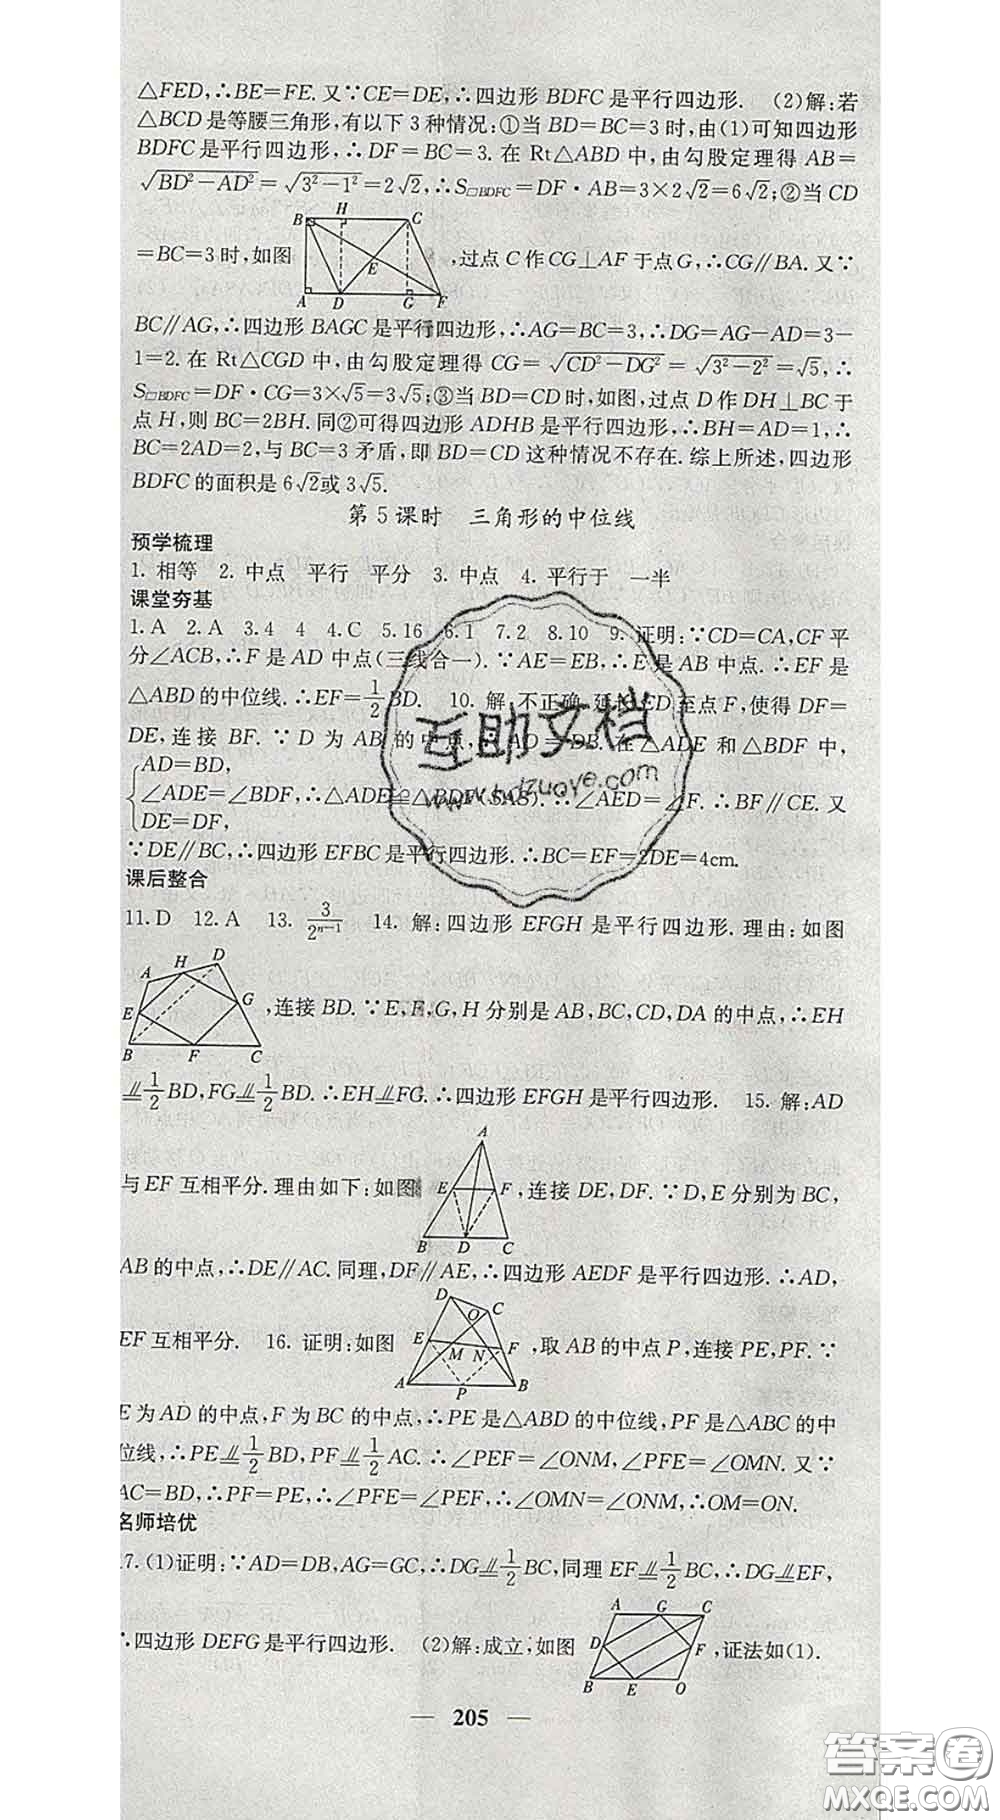 △FED,∴BE=FE.又∵CE=DE,∴四边形 BDFC 是平行四边形. (2)解:若
△BCD是等腰三角形,有以下3种情况:①当BD=BC=3时,由(1)可知四边形
BDFC是平行四边形,∴DF=BC=3.在Rt△ABD中,由勾股定理得AB=
√(BD²-AD²)=√(3²-1²)=2√2,∴S▱BDFC=DF·AB=3×2√2=6√2;②当CD
=BC=3时,如图
B H C E A D G F
,过点C作CG⊥AF于点G,∴CG∥BA.又∵
BC∥AG,∴四边形BAGC是平行四边形,∴AG=BC=3,∴DG=AG-AD=3-
1=2.在Rt△CGD中,由勾股定理得CG=√(CD²-DG²)=√(3²-2²)=√5,∴
S▱BDFC=DF·CG=3×√5=3√5;③当BD=CD时,如图,过点D作DH⊥BC于
点H,则BC=2BH.同②可得四边形ADHB是平行四边形,∴BH=AD=1,∴
BC=2AD=2,与BC=3矛盾,即BD=CD这种情况不存在.综上所述,四边形
BDFC的面积是6√2或3√5.
第5课时 三角形的中位线
预学梳理
1.相等 2.中点 平行 平分 3.中点 4.平行于 一半
课堂夯基
1.A 2.A 3.4 4 4.C 5.16 6.1 7.2 8.10 9.证明:∵CD=CA,CF平
分∠ACB,∴F是AD中点(三线合一).∵AE=EB,∴E是AB中点.∴EF是
△ABD的中位线.∴EF=1/2BD. 10.解:不正确.延长ED至点F,使得DF=
DE,连接BF.∵D为AB的中点,∴AD=DB.在△ADE和△BDF中,
AD=BD,
∠ADE=∠BDF,∴△ADE≌△BDF(SAS).∴∠AED=∠F.∴BF∥CE.又
DE=DF,
∵DE∥BC,∴四边形EFBC是平行四边形.∴BC=EF=2DE=4cm.
课后整合
11.D 12.A 13.3/2ⁿ⁻¹ 14.解:四边形EFGH是平行四边形.理由:如图
A H D G E B F C
,连接BD.∵E,F,G,H分别是AB,BC,CD,DA的中点,∴EH
⫽1/2BD,FG⫽1/2BD.∴EH⫽FG.∴四边形EFGH是平行四边形. 15.解:AD
与EF互相平分.理由如下:如图
A E F B D C
,连接DE,DF.∵D,E分别为BC,
AB的中点,∴DE∥AC.同理,DF∥AE,∴四边形AEDF是平行四边形.∴AD,
EF互相平分. 16.证明:如图
D O C E M N F A P B
,取AB的中点P,连接PE,PF.∵
E为AD的中点,F为BC的中点,∴PE是△ABD的中位线,PF是△ABC的中
位线,∴PE⫽1/2BD,PF⫽1/2AC.∴∠PEF=∠ONM,∠PFE=∠OMN.又∵
AC=BD,∴PF=PE,∴∠PFE=∠PEF,∴∠OMN=∠ONM,∴OM=ON.
名师培优
17.(1)证明:∵AD=DB,AG=GC,∴DG⫽1/2BC,同理EF⫽1/2BC,∴DG⫽EF,
∴四边形DEFG是平行四边形. (2)解:成立,如图
A G C D F B E O
,证法如(1).
205
互助文档
www.hdzuoye.com
答案圈
MXQE.COM